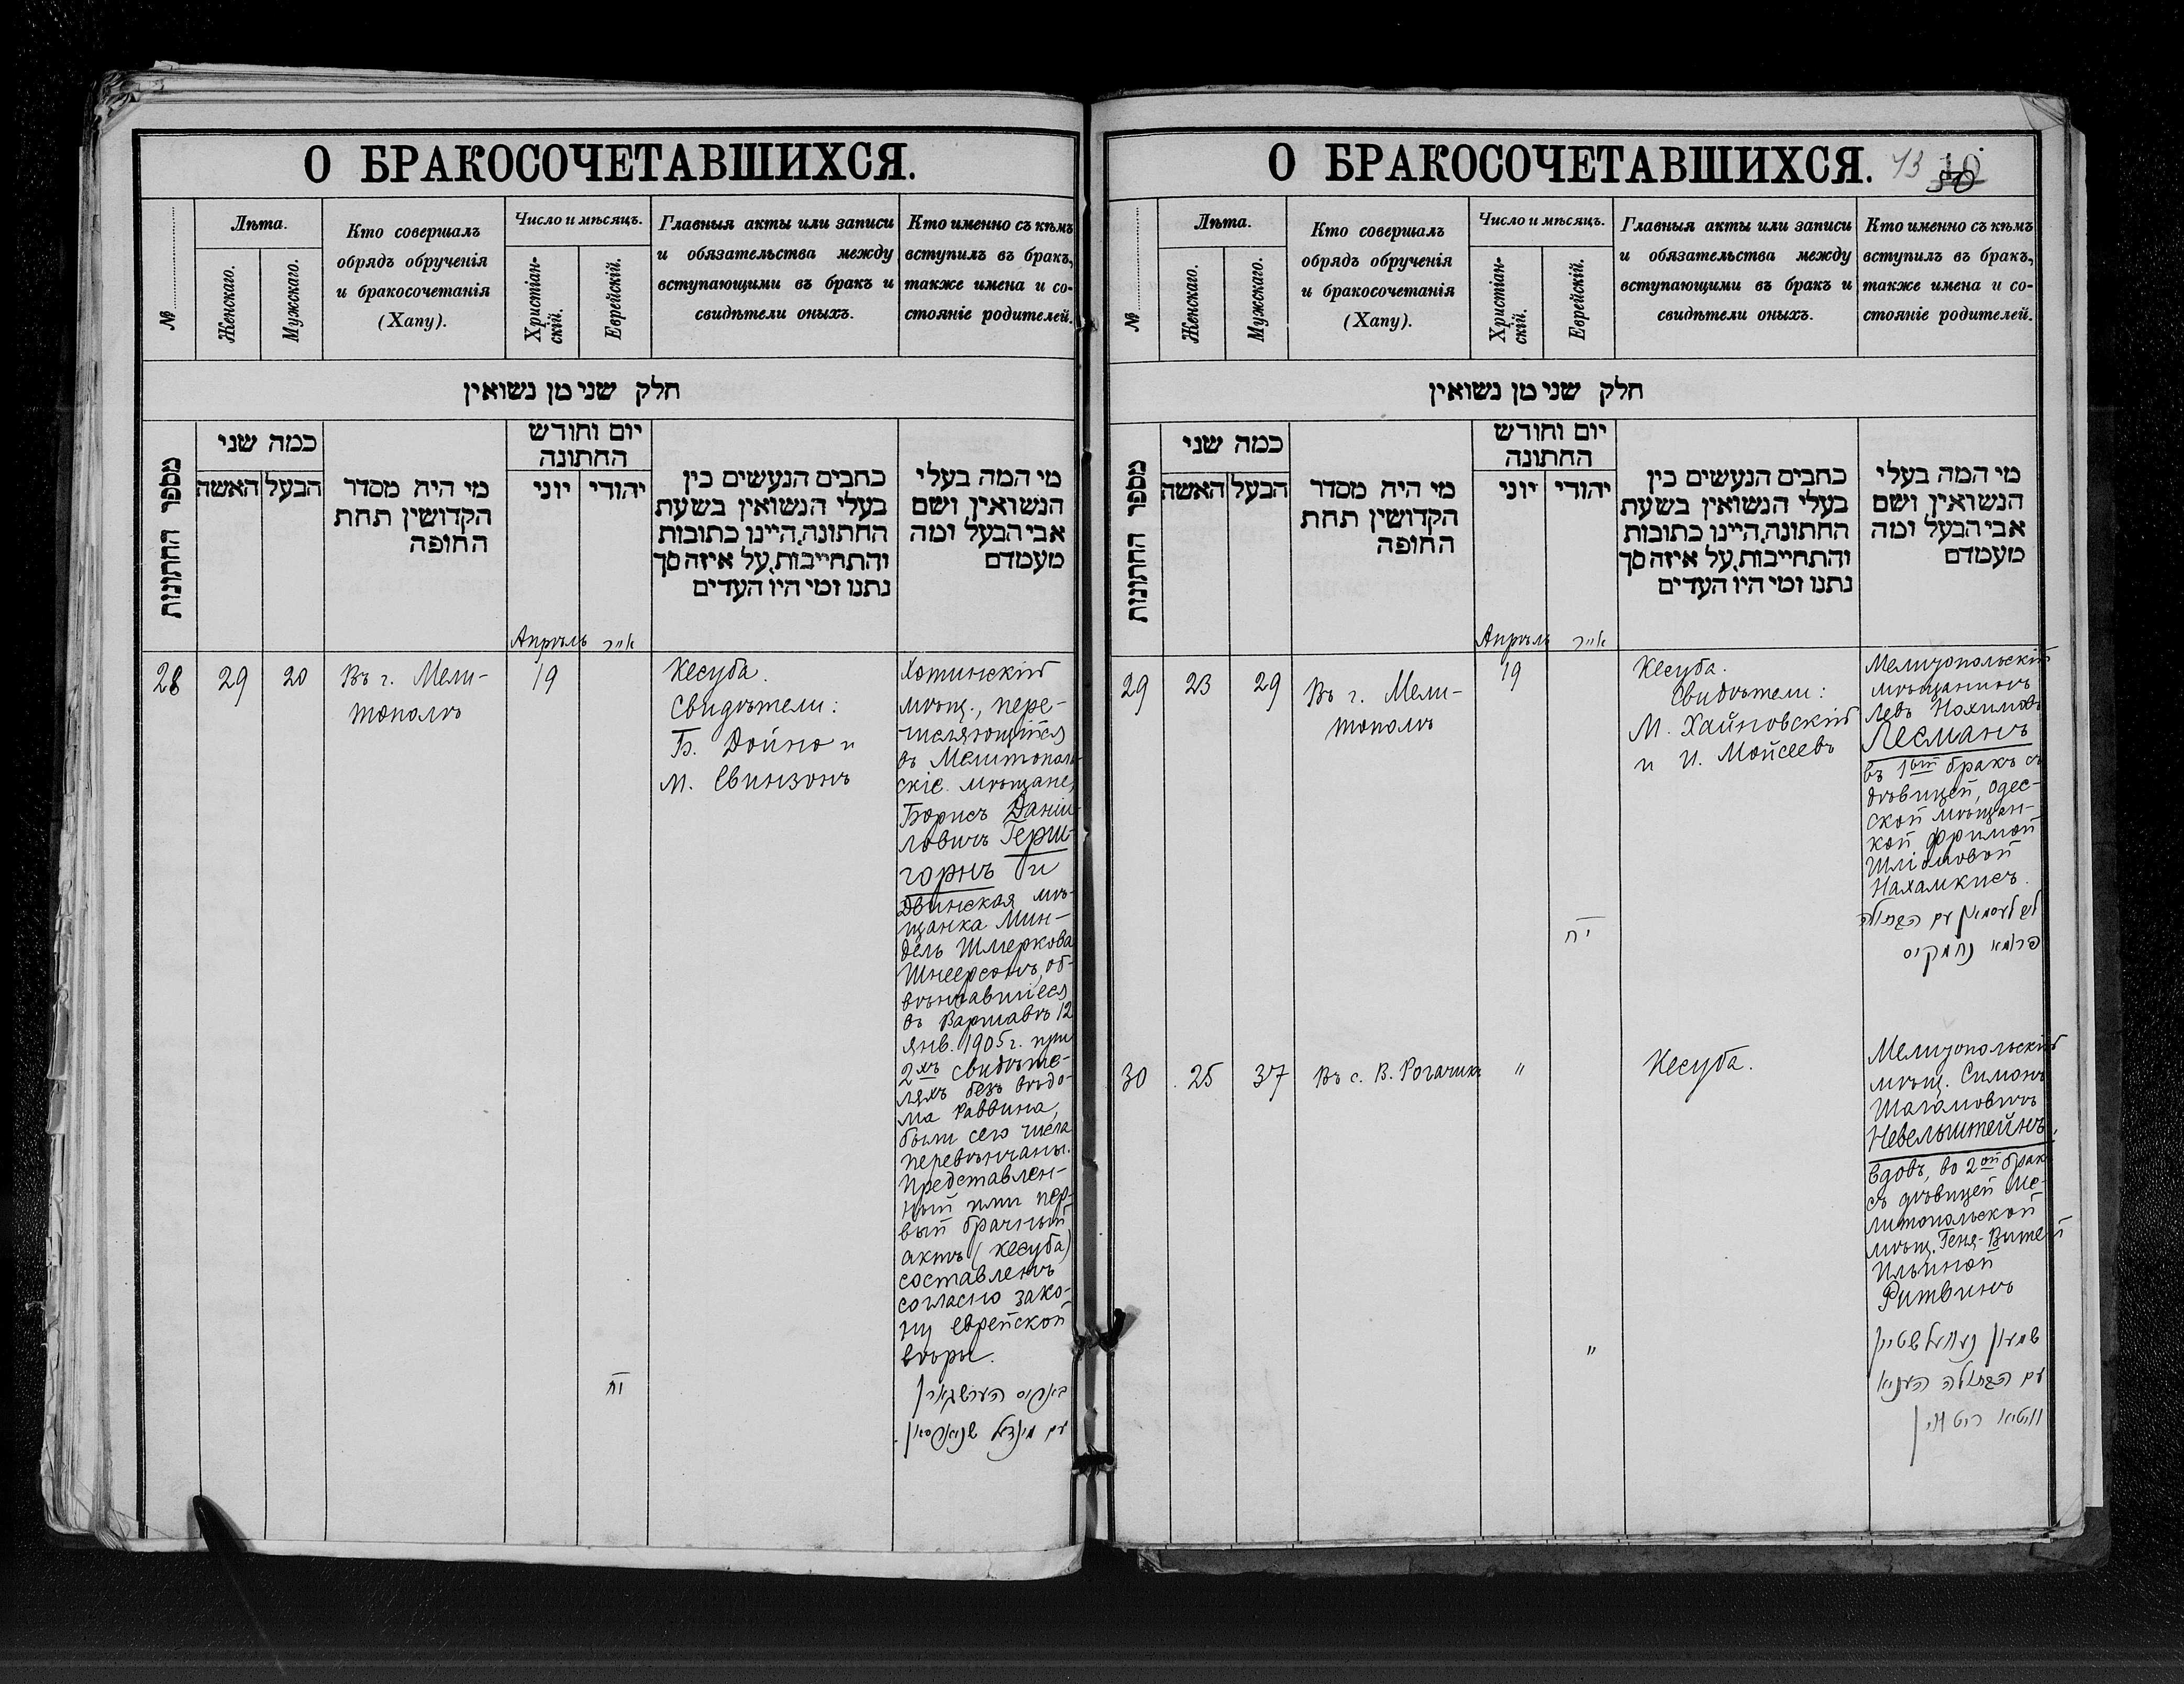 О БРАКОСОЧЕТАВШИХСЯ.
№
Лѣта.
Женскаго.
Мужскаго.
Кто совершалъ
обрядъ обрученія
и бракосочетанія
(Хапу).
Число и мѣсяцъ.
Христіан-
скій.
Еврейскій.
Главныя акты или записи
и обязательства между
вступающими въ бракъ и
свидѣтели оныхъ.
Кто именно съ кѣмъ
вступилъ въ бракъ,
также имена и со-
стояніе родителей.
חלק שני מן נשואין
מספר החתונות
כמה שני
האשה
הבעל
מי היה מסדר
הקדושין תחת
החופה
יום וחודש
החתונה
יוני
יהודי
כתבים הנעשים בין
בעלי הנשואין בשעת
החתונה, היינו כתובות
והתחייבות, על איזה סך
נתנו ומי היו העדים
מי המה בעלי
הנשואין ושם
אבי הבעל ומה
מעמדם
Апрѣль
אייר
28
29
20
Въ г. Мели-
тополѣ
19
יח
Кесуба.
Свидѣтели:
Б. Дойно и
М. Свинзонъ
Хотинскій
мѣщ., пере-
числяющійся
въ Мелитополь-
скіе мѣщане,
Борисъ Даніи-
ловичъ Герш-
горнъ и
Двинская мѣ-
щанка Мин-
дель Шмеркова
Шнеерсонъ, об-
вѣнчавшіеся
въ Варшавѣ 12
янв. 1905 г. при
2хъ свидѣте-
ляхъ безъ вѣдо-
ма раввина,
были сего числа
перевѣнчаны.
Представлен-
ный ими пер-
вый брачный
актъ (кесуба)
составленъ
согласно зако-
ну еврейской
вѣры.
באריס הערשגארן
עם מינדל שניאורסאן
О БРАКОСОЧЕТАВШИХСЯ.
43
№
Лѣта.
Женскаго.
Мужскаго.
Кто совершалъ
обрядъ обрученія
и бракосочетанія
(Хапу).
Число и мѣсяцъ.
Христіан-
скій.
Еврейскій.
Главныя акты или записи
и обязательства между
вступающими въ бракъ и
свидѣтели оныхъ.
Кто именно съ кѣмъ
вступилъ въ бракъ,
также имена и со-
стояніе родителей.
חלק שני מן נשואין
מספר החתונות
כמה שני
האשה
הבעל
מי היה מסדר
הקדושין תחת
החופה
יום וחודש
החתונה
יוני
יהודי
כתבים הנעשים בין
בעלי הנשואין בשעת
החתונה, היינו כתובות
והתחייבות, על איזה סך
נתנו ומי היו העדים
מי המה בעלי
הנשואין ושם
אבי הבעל ומה
מעמדם
Апрѣль
אייר
29
23
29
Въ г. Мели-
тополѣ
19
יח
Кесуба.
Свидѣтели:
М. Хайновскій
и И. Мойсеевъ
Мелитопольскій
мѣщанинъ
Левъ Нохимовъ
Лесманъ
въ 1ый бракъ съ
дѣвицей, одес-
ской мѣщан-
кой Фримой
Шліомовой
Нахамкисъ.
לב לעסמאן עם הבתולה
פרומא נחמקיס
30
25
37
Въ с. В. Рогачикъ
"
"
Кесуба.
Мелитопольскій
мѣщ. Симонъ
Шагамовичъ
Невельштейнъ,
вдовъ, во 2ой бракъ
съ дѣвицей Ме-
литопольской
мѣщ. Геня-Витей
Ильиной
Ритвинъ
שמעון נעוועלשטיין
עם הבתולה העניא
וויטיא ריטווין